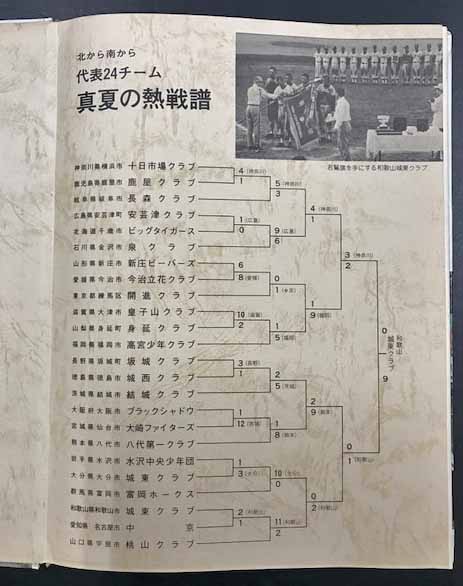 北から南から
代表24チーム
真夏の熱戦譜
若鷲旗を手にする和歌山城東クラブ
神奈川県横浜市 十日市場クラブ
鹿児島県鹿屋市 鹿屋クラブ
岐阜県岐阜市 長森クラブ
広島県安芸津町 安芸津クラブ
北海道千歳市 ビッグタイガース
石川県金沢市 泉クラブ
山形県新庄市 新庄ビーバーズ
愛媛県今治市 今治立花クラブ
東京都練馬区 開進クラブ
滋賀県大津市 皇子山クラブ
山梨県身延町 身延クラブ
福岡県福岡市 高宮少年クラブ
長野県坂城町 坂城クラブ
徳島県徳島市 城西クラブ
茨城県結城市 結城クラブ
大阪府大阪市 ブラックシャドウ
宮城県仙台市 大崎ファイターズ
熊本県八代市 八代第一クラブ
岩手県水沢市 水沢中央少年団
大分県大分市 城東クラブ
群馬県富岡市 富岡ホークス
和歌山県和歌山市 城東クラブ
愛知県名古屋市 中京
山口県宇部市 桃山クラブ
4 (神奈川)
1
5 (神奈川)
3
1 (広島)
0
9 (広島)
6
4 (神奈川)
1
6
8 (愛媛)
0
1 (東京)
10 (滋賀)
2
1
5 (福岡)
1
9 (福岡)
3 (神奈川)
2
3 (長野)
1
2
5 (茨城)
1
12 (宮城)
1
8 (熊本)
2
9 (熊本)
1
3 (大分)
10 (大分)
0
2 (和歌山)
1
11 (和歌山)
2
0
2 (和歌山)
0
1 (和歌山)
0
9
和歌山
城東クラブ